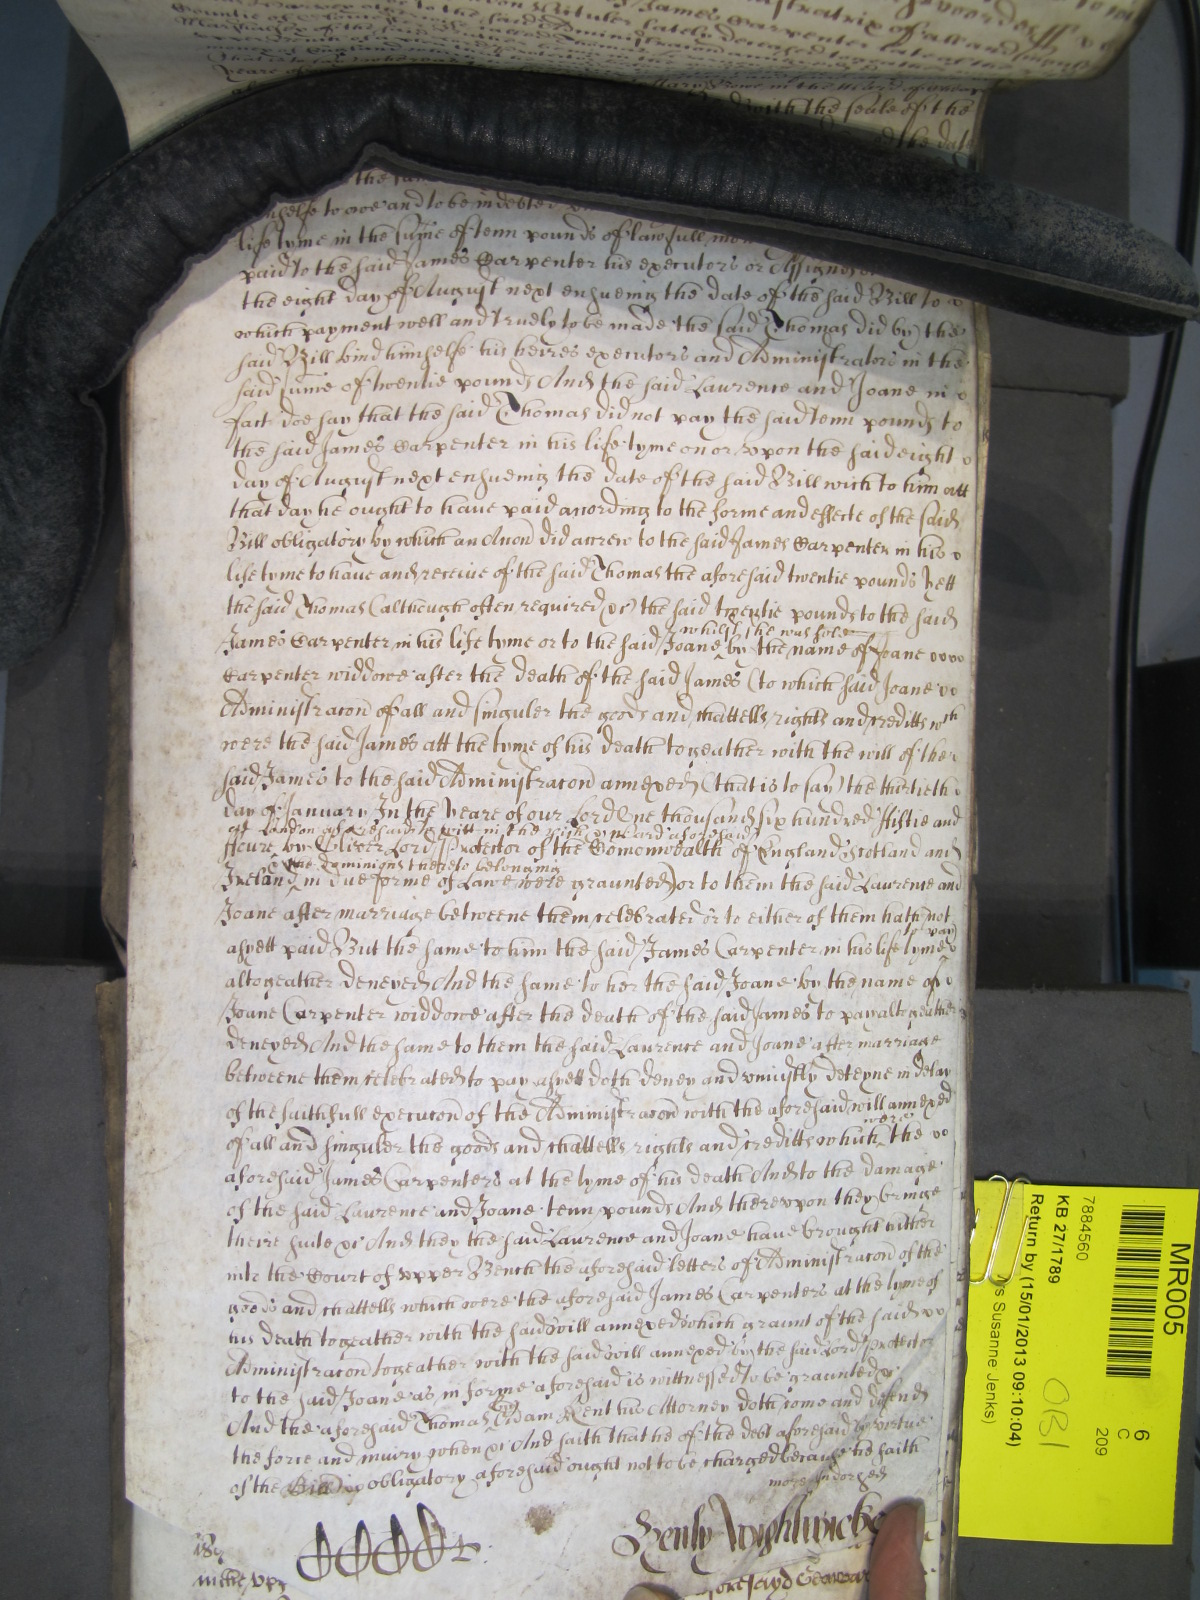 James Carpenter late of
lately deceased
with the seale of the
the dat
himselfe to owe and to be indebted
life tyme in the sume of tenn pounds of lawfull mon
paid to the said James Carpenter his executors or Assignes
the eight day of August next ensueing the date of the said Bill to
which payment well and truely to be made the said Thomas did by the
said Bill bind himselfe his heires executors and Administrators in the
said sume of twentie pounds And the said Laurence and Joane in
fact doe say that the said Thomas did not pay the said tenn pounds to
the said James Carpenter in his life tyme on or upon the said eight
day of August next ensueing the date of the said Bill wich to him att
that day he ought to have paid acording to the forme and effecte of the said
Bill obligatory by which an Accon did accrew to the said James Carpenter in his
life tyme to have and receive of the said Thomas the aforesaid twentie pounds Yett
the said Thomas (although often required &c) the said twentie pounds to the said
James Carpenter in his life tyme or to the said Joane whilst she was sole by the name of Joane
Carpenter widdowe after the death of the said James (to which said Joane
Administracon of all and singuler the goods and chattells rights and creditts wch
were the said James att the tyme of his death togeather with the will of the
said James to the said Administracon annexed (that is to say) the thirtieth
day of January In the Yeare of our Lord One thousand six hundred fiftie and
att London aforesaid to witt in the pish & ward aforesaid
ffoure by Oliver Lord Protector of the Comonwealth of England Scotland and
& the dominions thereto belonging
Ireland in due forme of Lawe were graunted) or to them the said Laurence and
Joane after marriage betweene them celebrated or to either of them hath not
asyett paid But the same to him the said James Carpenter in his life tyme to pay
altogeather deneyed And the same to her the said Joane by the name of
Joane Carpenter widdowe after the death of the said James to pay altogeather
deneyed And the same to them the said Laurence and Joane after marriage
betweene them celebrated to pay asyett doth deney and uniustly deteyne in delay
of the faithfull execucon of the Administracon with the aforesaid will annexed
of all and singuler the goods and chattells rights and creditts which were the
aforesaid James Carpenters at the tyme of his death And to the damage
of the said Laurence and Joane tenn pounds And thereupon they bringe
theire suite &c And they the said Laurence and Joane have brought hither
into the Court of Upper Bench the aforesaid letters of Administracon of the
goods and chattells which were the aforesaid James Carpenters at the tyme of
his death togeather with the said will annexed which graunt of the said
Administracon togeather with the said will annexed by the said Lord Protector
to the said Joane as in forme aforesaid is wittnessed to be graunted &c
And the aforesaid Thomas by Adam Kent his Attorney doth come and defend
the force and iniury when &c And saith that he of the debt aforesaid by virtue
of the Bill obligatory aforesaid ought not to be charged because he saith
more Indorsed
MR005
6
C
209
7884560
KB 27/1789
Return by (15/01/2013 09:10:04)
Susanne Jenks)
OB1